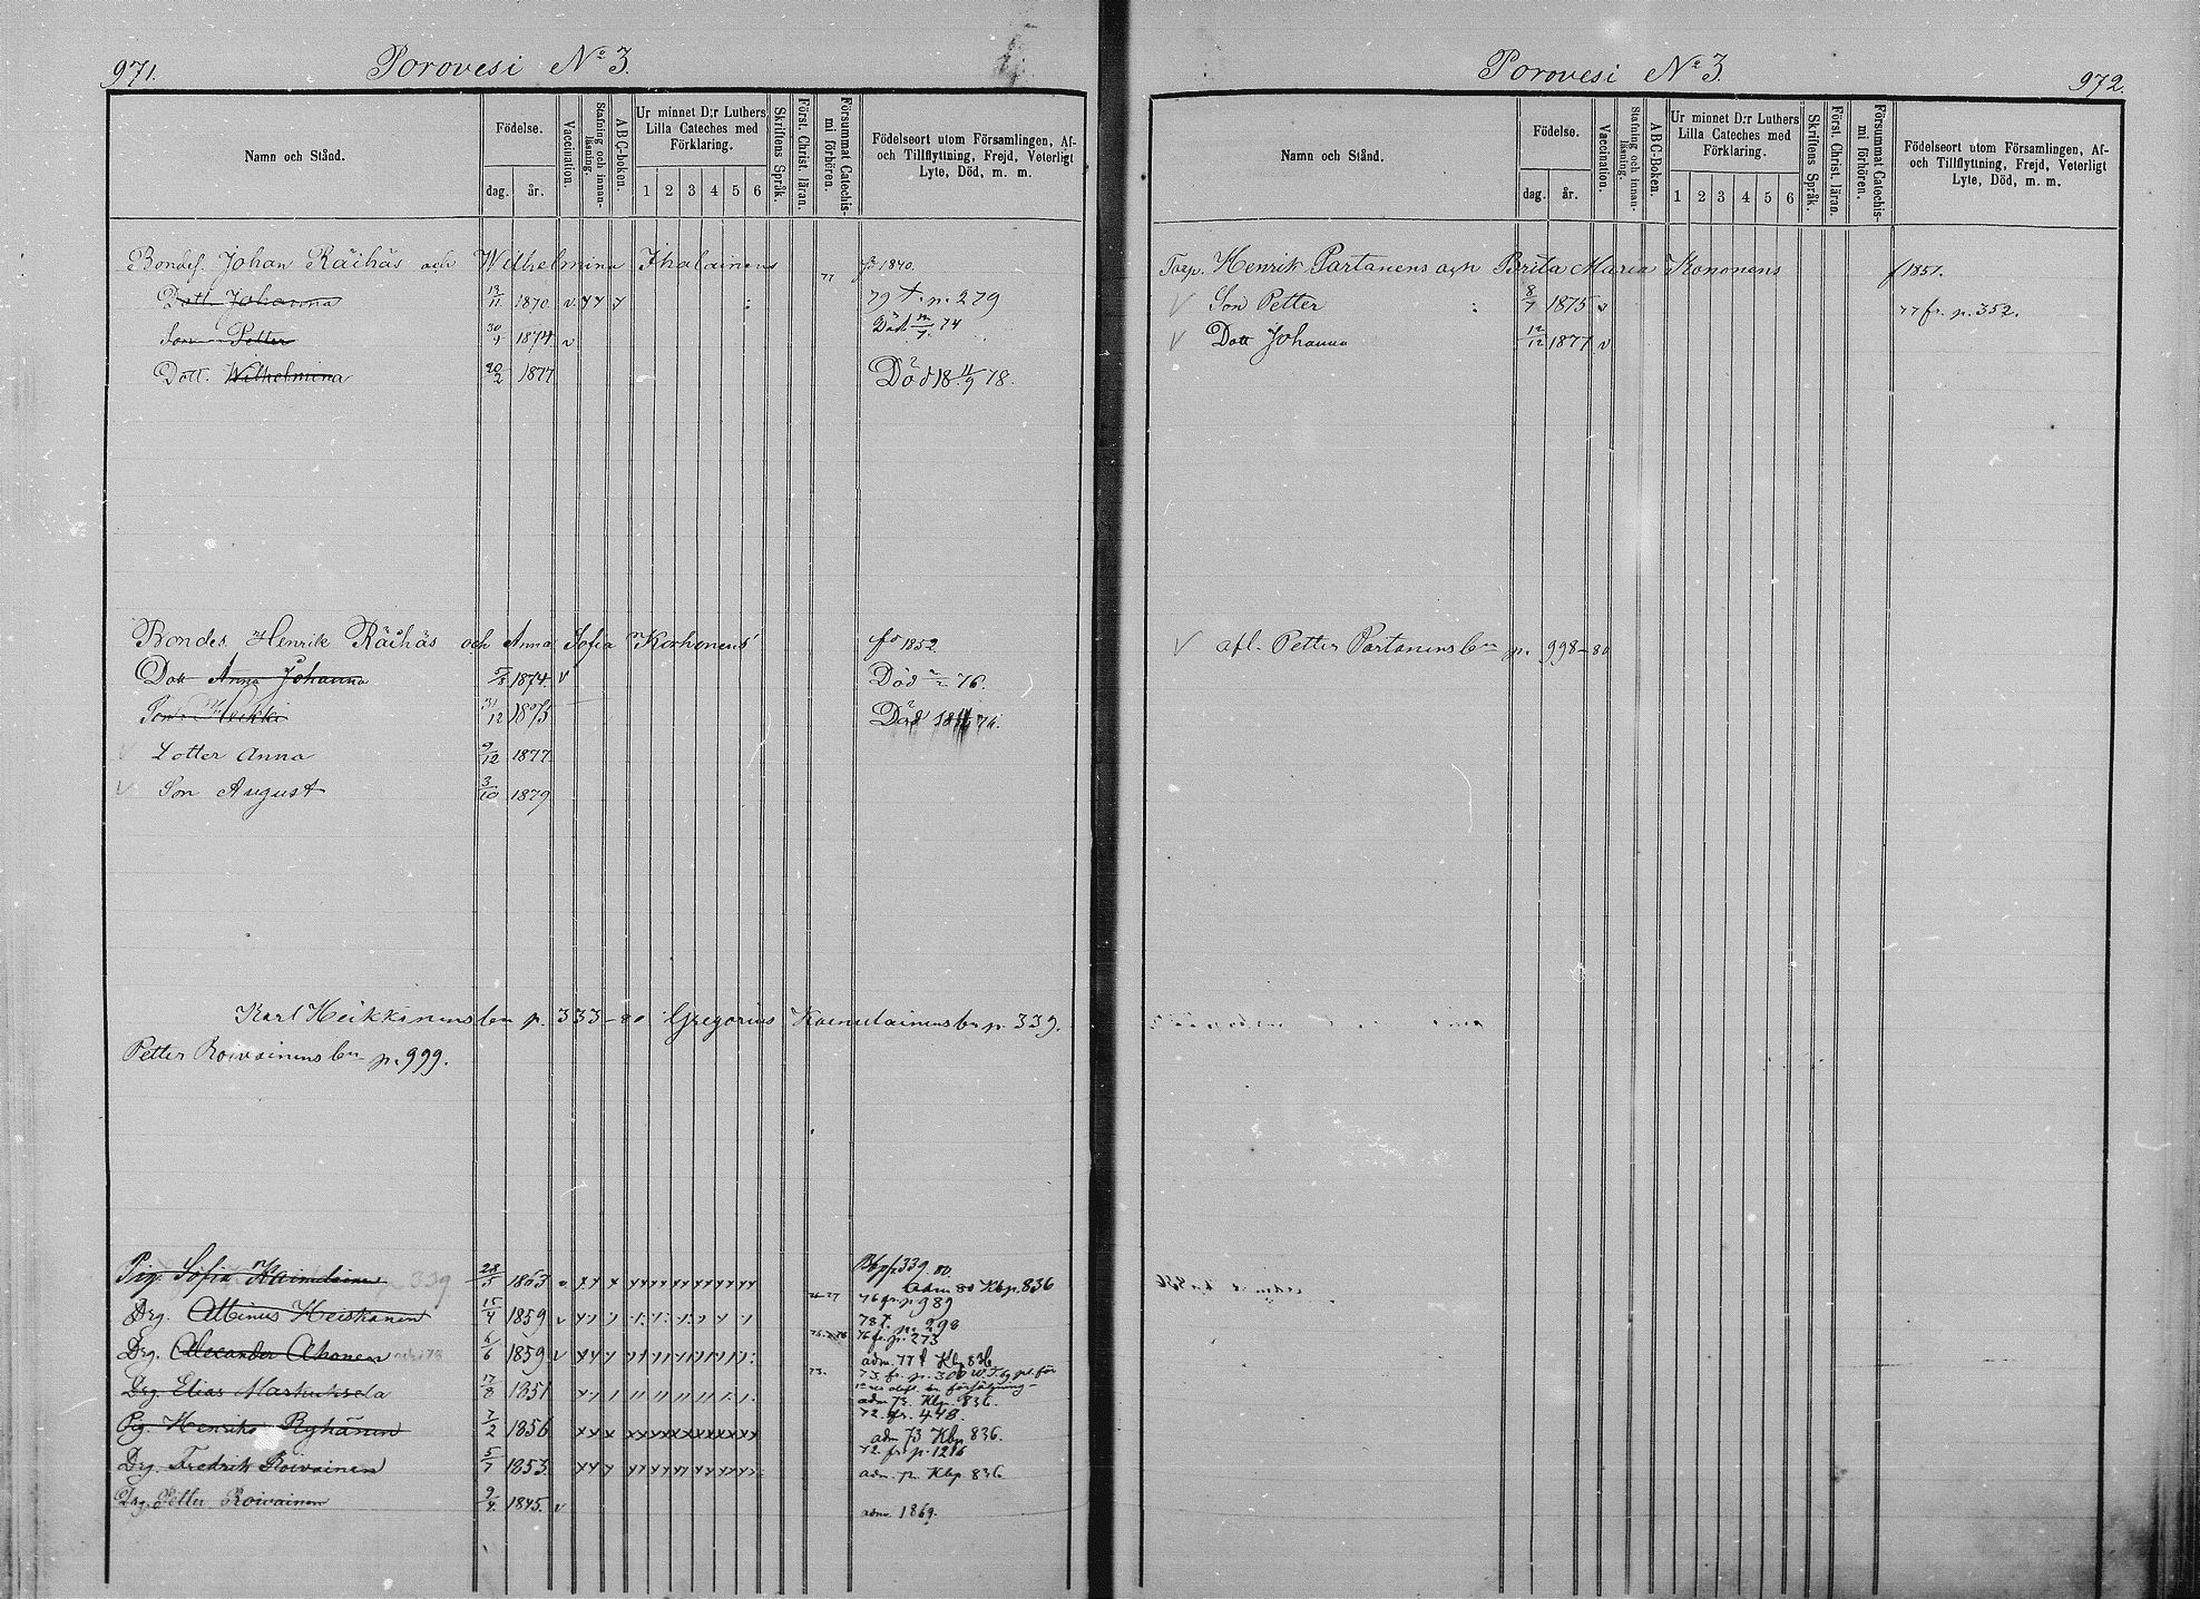 971.
Porovesi No 3.
Namn och Stånd.
Födelse.
dag.
år.
Vaccination.
Stafning och innan-
läsning.
ABC-boken.
Ur minnet D:r Luthers
Lilla Cateches med
Förklaring.
1 2 3 4 5 6
Skriftens Språk.
Först. Christ. läran.
Försummat Catechis-
mi förhören.
Födelseort utom Församlingen, Af-
och Tillflyttning, Frejd, Veterligt
Lyte, Död, m. m.
Johan Räihäs och Wilhelmina Ihalainens 77 1840.
Dott. Johanna 13/11 1870. v 79 t. p. 279
Son Petter 30/4 1874 v Död 74
Dott. Wilhelmina 20/2 1877 Död 18 11/9 78.
Bondes. Henrik Räihäs och Anna Sofia Korhonens 1852
Dott Anna Johanna 5/8 1874. v Död 76.
Son Heikki 31/12 1875 Död 18 76.
Dotter Anna 9/12 1877
Son August 3/10 1879
Karl Heikkinens bn p. 333-80 Gregorius Kaimulainens bn p. 339.
Petter Roivainens bn p. 999.
Pig. Sofia Kaimulainen 339 28/5 1863 339. 80.
adm 80 Kbp. 836
Drg. Albinus Heiskanen 15/4 1859 v 76 fr. p. 989
78 t. p. 298
Drg. Alexander Ahonen 6/6 1859 v 76 fr. p. 273
adm. 77 Kbp 836
Drg. Elias Markuksela 17/8 1851 73. 73. fr. p. 300
adm 73. Kbp. 836.
Pig. Henrika Ryhänen 7/2 1856 72. fr. 448.
adm 73 Kbp 836.
Drg. Fredrik Roivainen 5/7 1853. 72. fr. p. 1216
adm. Kbp 836
Drg. Petter Roivainen 9/4. 1845. v adm. 1869.
Porovesi No 3.
972.
Namn och Stånd.
Födelse.
dag.
år.
Vaccination.
Stafning och innan-
läsning.
ABC-Boken.
Ur minnet D:r Luthers
Lilla Cateches med
Förklaring.
1 2 3 4 5 6
Skriftens Språk.
Först. Christ. läran.
Försummat Catechis-
mi förhören.
Födelseort utom Församlingen, Af-
och Tillflyttning, Frejd, Veterligt
Lyte, Död, m. m.
Torp. Henrik Partanens och Brita Maria Kononens f 1851.
Son Petter 8/7 1875 v 77 fr. p. 352.
Dott Johanna 12/12 1877 v
afl. Petter Partanens bn p. 998-80